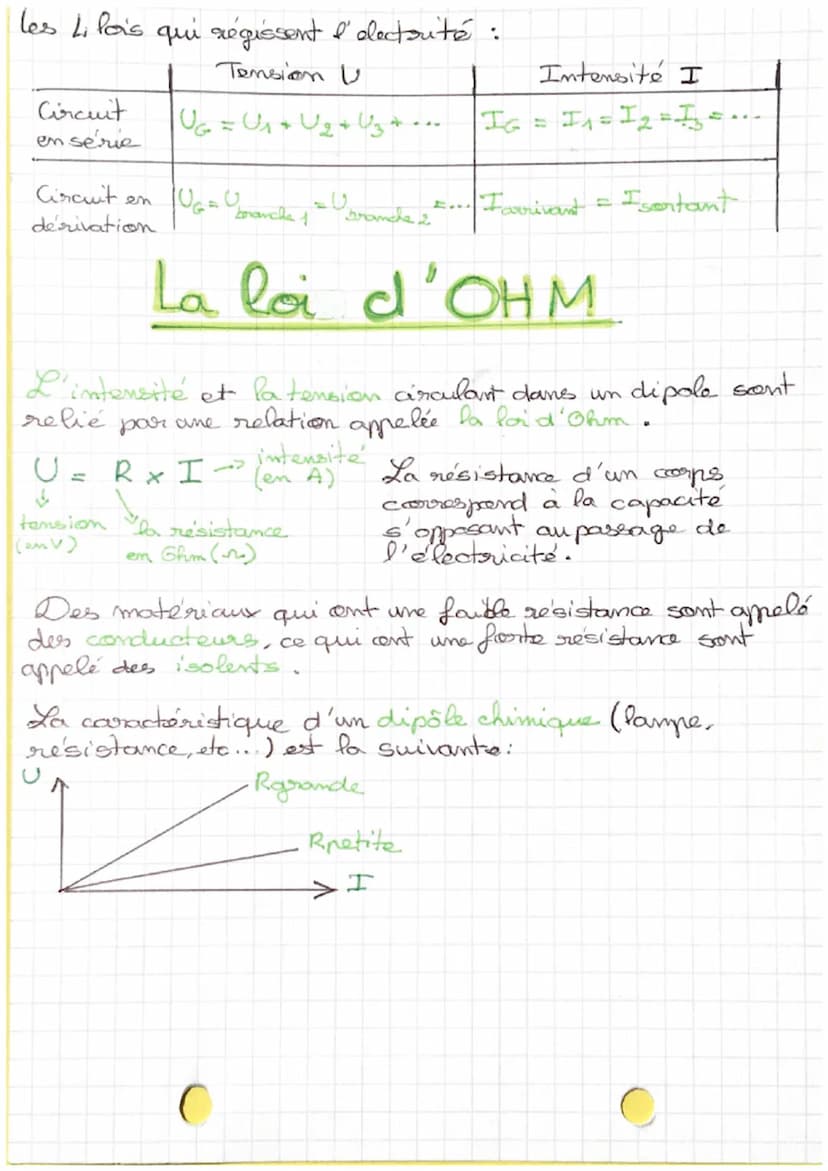 les 4 lois qui régissent l'électrité :
Tension U Intensité I
Circuit en série
UG = U1 + U2 + U3 + ... IG = I1 = I2 = I3 = ...
Circuit en dérivation
UG = Ubranche 1 = Ubranche 2 = ... Iarrivant = Isortant
La loi d'OHM
L'intensité et la tension circulant dans un dipole sont
relié par une relation appelée la loi d'Ohm.
U = R x I → intensité (en A)
tension (en V)
la résistance
en Ohm (Ω)
La résistance d'un corps
correspond à la capacité
s'opposant au passage de
l'électricité.
Des matériaux qui ont une faible résistance sont appelé
des conducteurs, ce qui ont une forte résistance sont
appelé des isolents.
La caractéristique d'un dipôle chimique (lampe,
résistance, etc...) est la suivante:
U
Rgrande
Rpetite
I